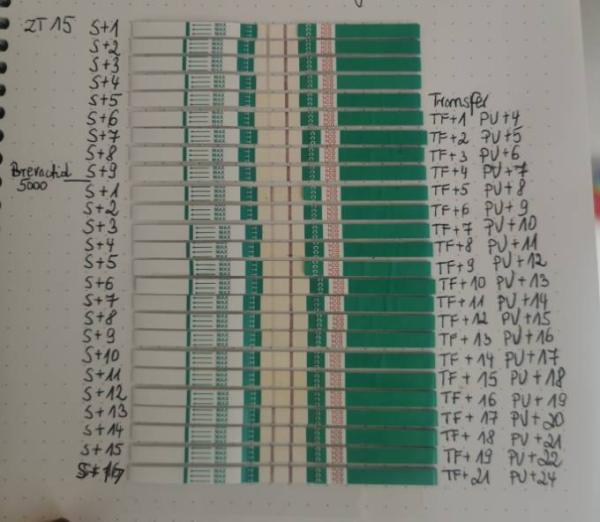 ZT 15 S+1
S+2
S+3
S+4
S+5 Transfer
S+6 TF+1 PU+4
S+7 TF+2 PU+5
S+8 TF+3 PU+6
Brevactid S+9 TF+4 PU+7
5000 S+1 TF+5 PU+8
S+2 TF+6 PU+9
S+3 TF+7 PU+10
S+4 TF+8 PU+11
S+5 TF+9 PU+12
S+6 TF+10 PU+13
S+7 TF+11 PU+14
S+8 TF+12 PU+15
S+9 TF+13 PU+16
S+10 TF+14 PU+17
S+11 TF+15 PU+18
S+12 TF+16 PU+19
S+13 TF+17 PU+20
S+14 TF+18 PU+21
S+15 TF+19 PU+22
TF+21 PU+24